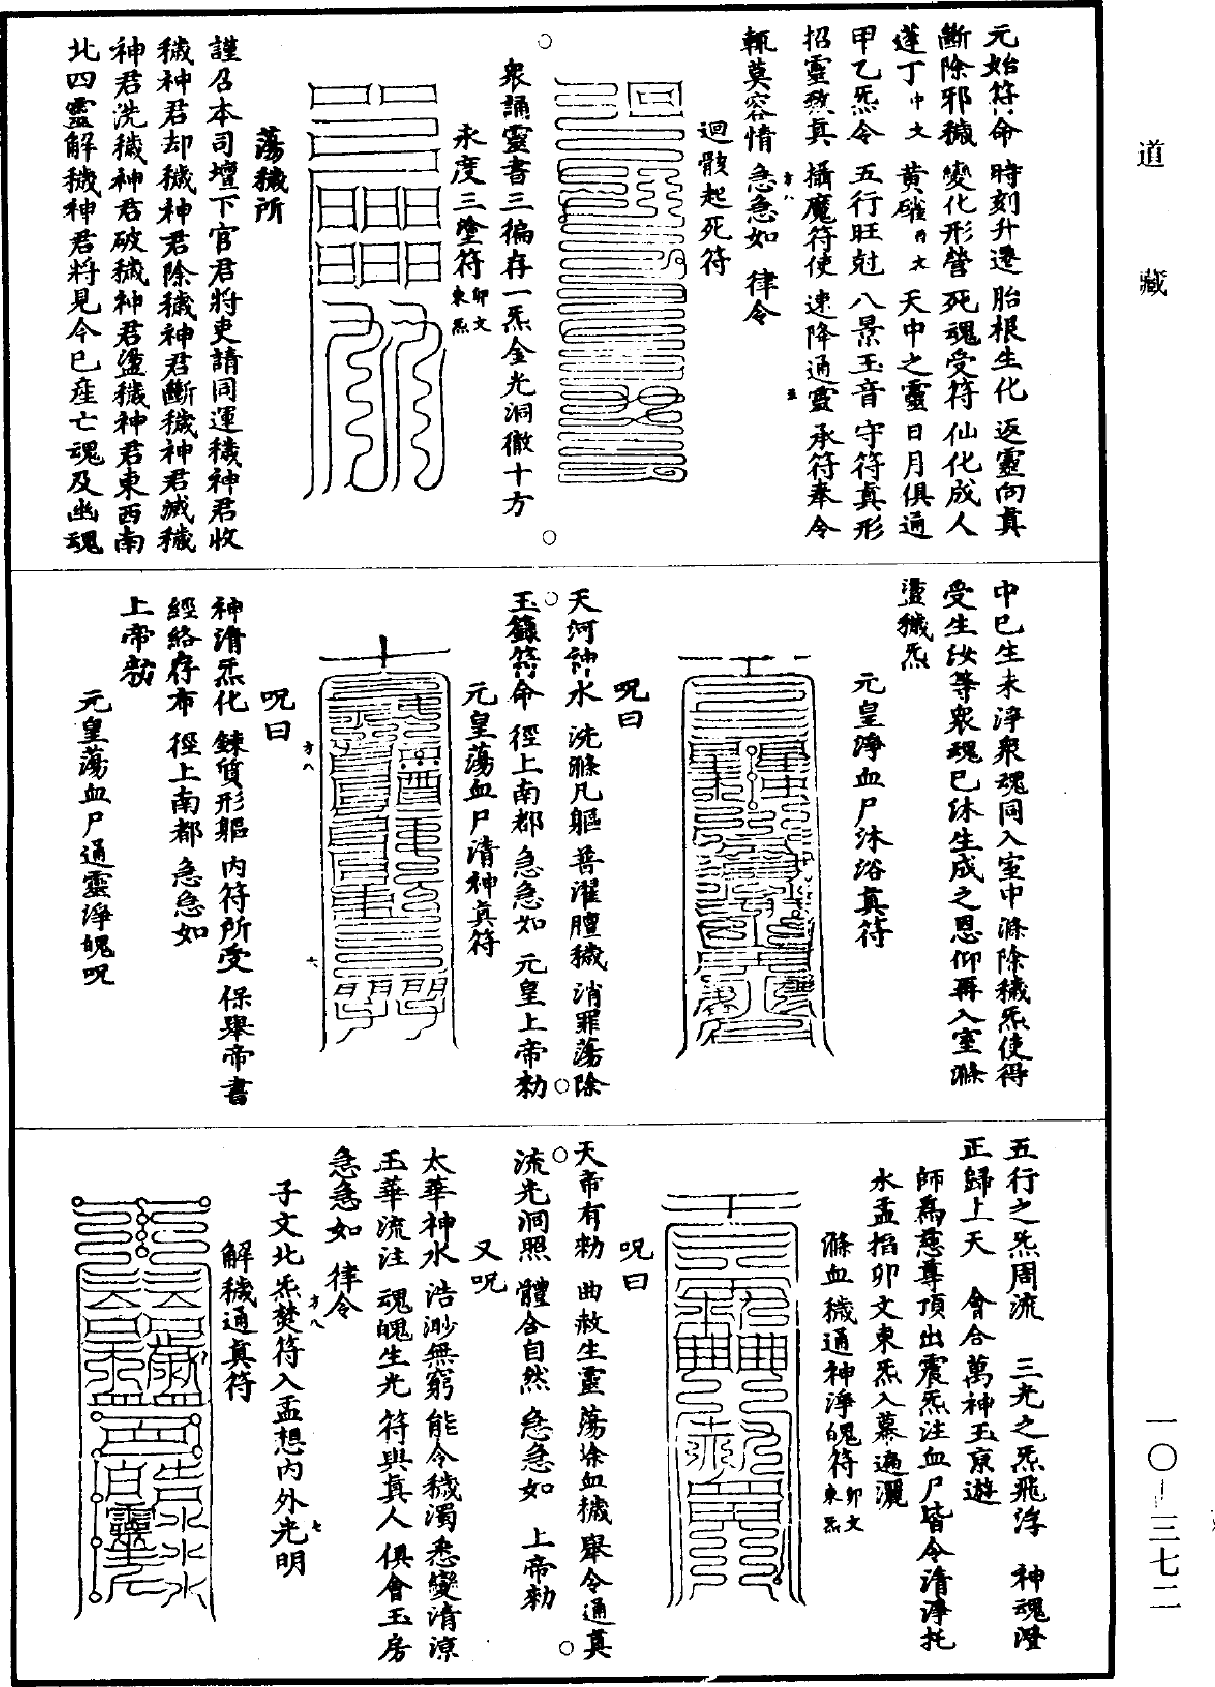 道藏
元始符命　時刻升遷　胎根生化　返靈向真
斷除邪穢　變化形營　死魂受符　仙化成人
蓬丁中文　黃硝丙文　天中之靈　日月俱通
甲乙炁令　五行旺尅　八景玉音　守符真形
招靈致真　攝魔符使　速降通靈　承符奉令
輒莫容情　急急如　律令
迴骸起死符
眾誦靈書三徧存一炁金光洞徹十方
永度三塗符卯文東炁
蕩穢所
謹召本司壇下官君將吏請同運穢神君收
穢神君却穢神君除穢神君斷穢神君滅穢
神君洗穢神君破穢神君盪穢神君東西南
北四靈解穢神君將見今已產亡魂及幽魂
中已生未淨眾魂同入室中滌除穢炁使得
受生汝等眾魂已沐生成之恩仰再入室滌
盪穢炁
元皇淨血尸沐浴真符
呪曰
天河神水　洗滌凡軀　普濯膻穢　消罪蕩除
玉籙符命　徑上南都　急急如　元皇上帝勑
元皇蕩血尸清神真符
呪曰
神清炁化　鍊質形軀　內符所受　保舉帝書
經絡存布　徑上南都　急急如
上帝勑
元皇蕩血尸通靈淨魄呪
五行之炁周流　三光之炁飛浮　神魂澄
正歸上天　會合萬神玉京遊
師爲慈尊頂出震炁注血尸皆令清淨托
水盂掐卯文東炁入幕遍灑
滌血穢通神淨魄符卯文東炁
呪曰
天帝有勑　曲赦生靈　蕩滌血穢　舉令通真
流光洞照　體合自然　急急如　上帝勑
又呪
太華神水　浩渺無窮　能令穢濁　悉變清涼
玉華流注　魂魄生光　符與真人　俱會玉房
急急如　律令
子文北炁焚符入盂想內外光明
解穢通真符
一〇—三七二